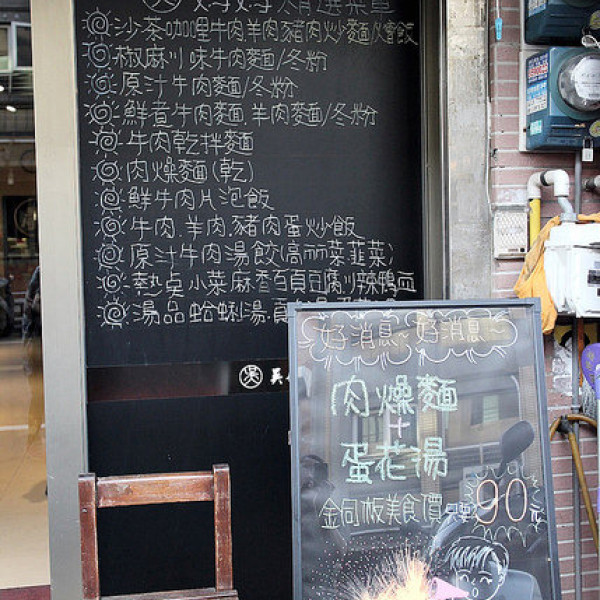 媽媽精選菜單
沙茶.咖哩牛肉羊肉豬肉炒麵/燴飯
椒麻川味牛肉麵/冬粉
原汁牛肉麵/冬粉
鮮煮牛肉麵.羊肉麵/冬粉
牛肉乾拌麵
肉燥麵(乾)
鮮牛肉片泡飯
牛肉.羊肉.豬肉蛋炒飯
原汁牛肉湯餃(高麗菜韭菜)
熱桌小菜麻香百頁豆腐川辣鴨血
湯品蛤蜊湯.
吳
好消息~好消息~
肉燥麵
+
蛋花湯
金同板美食價只要90元